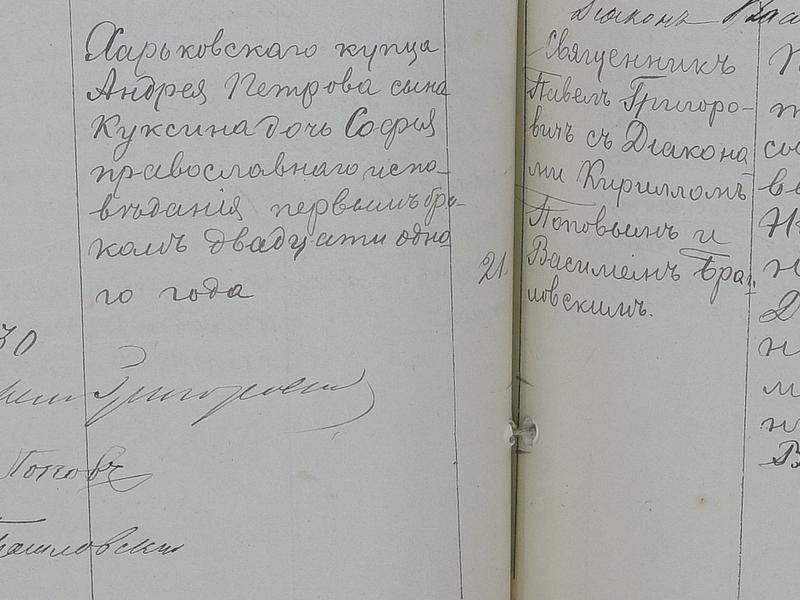 Харьковскаго купца
Андрея Петрова сына
Куксина дочь София
православнаго испо-
ведания первымъ бра-
комъ двадцати одно
го года
30
Григорович
Поповъ
21.
Диаконъ
Священникъ
Павелъ Григоро-
вичъ съ Диакона
ми Кирилломъ
Поповымъ и
Василиемъ Браи-
ловскимъ.